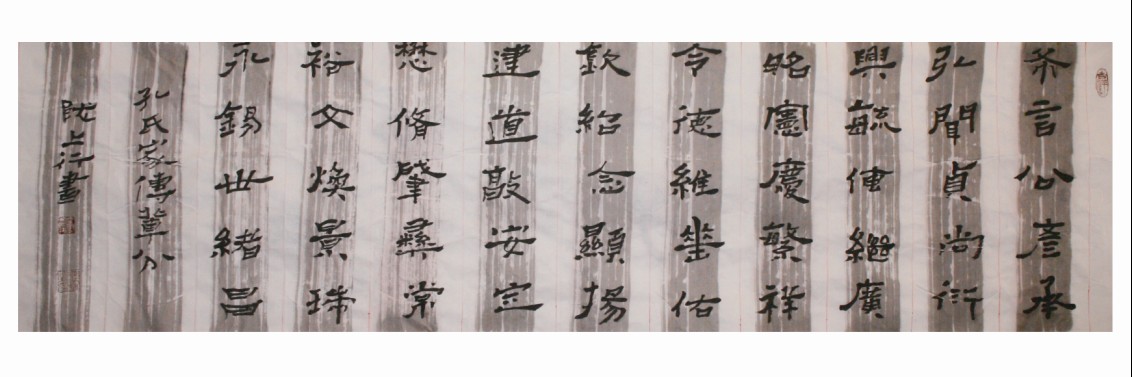 希言公彦承
弘聞貞尚衍
興毓傳繼廣
昭憲慶繁祥
令德維垂佑
欽紹念顯揚
建道敦安定
懋脩肇彝常
裕文煥景瑞
永錫世緒昌
孔氏家傳輩分
上行書